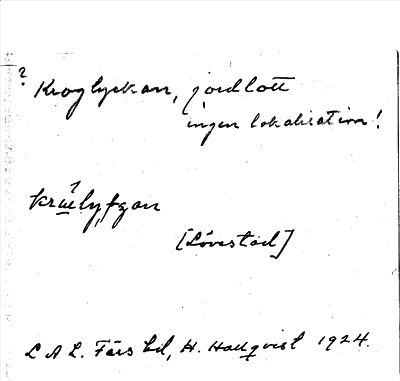 ? Kroglyckan, jordlott
ingen lokalisation!
[Lövestad]
L A L. Färs hd, H. Hallqvist 1924.